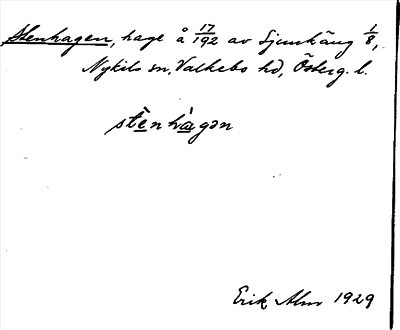 Stenhagen, hage å 17/192 av Sjunkäng 1/8,
Nykils sn, Valkebo hd, Österg. l.
stènhàgən
Erik Alm 1929